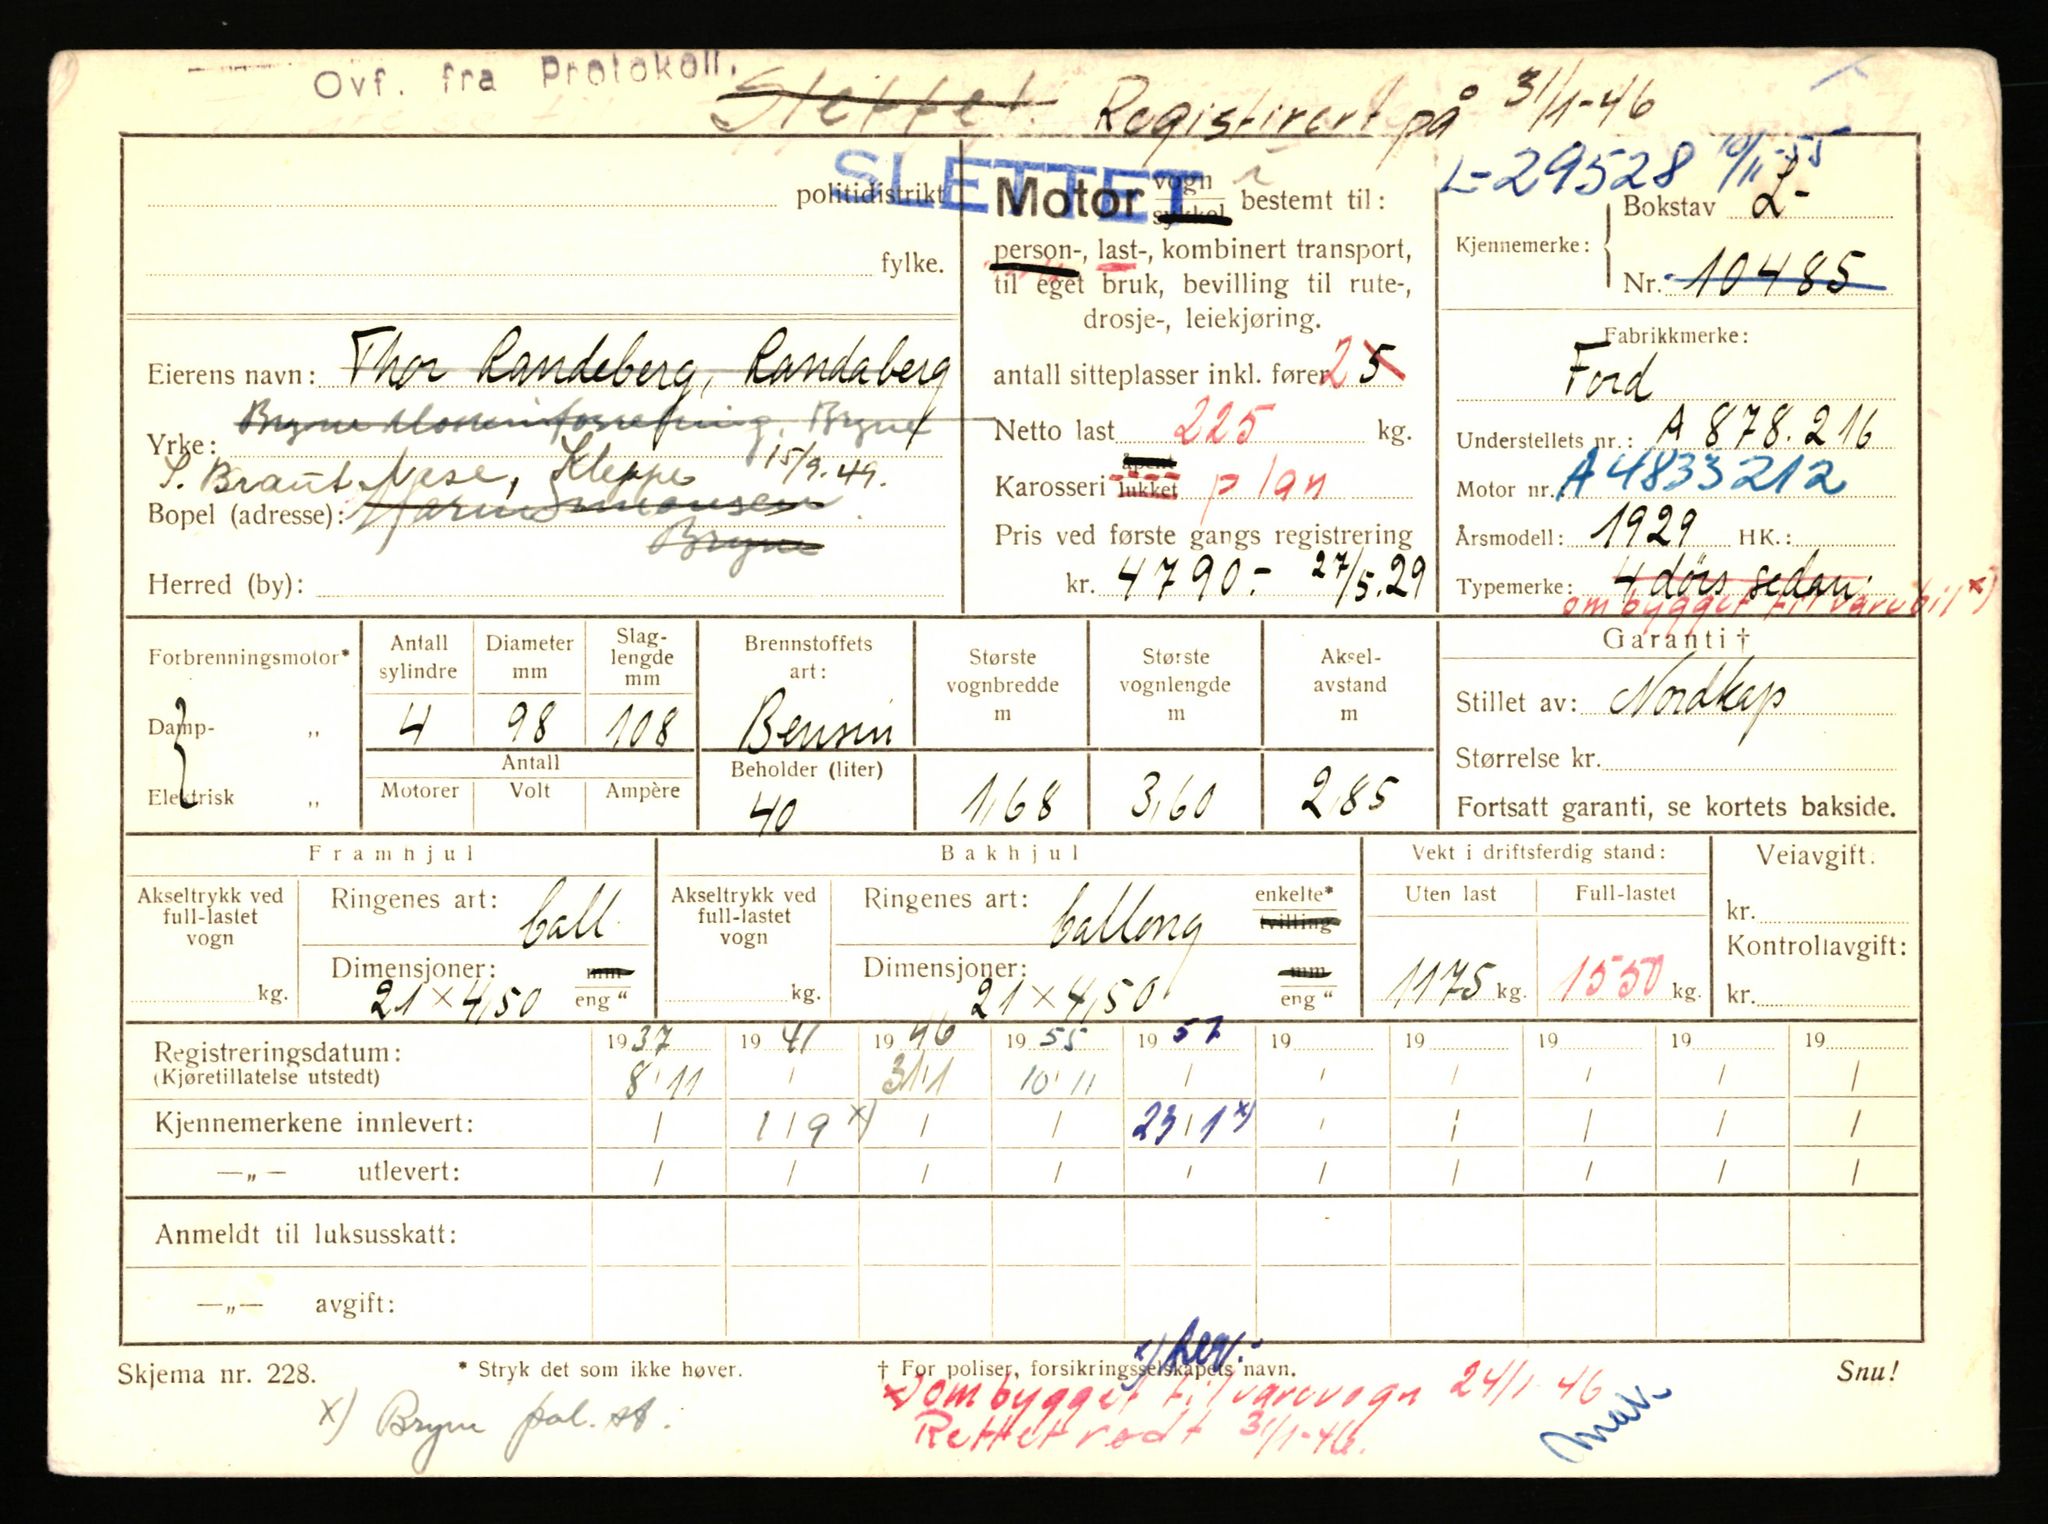 Ovf. fra Protokoll.
Slettet. Registrert på 31/1-46
SLETTET
L-29528 10/11-55
politidistrikt
fylke.
Eierens navn: Thor Randeberg, Randaberg
Bryne Bryne
Yrke:
S. Braut Nese, Kleppe 15/9.49.
Bopel (adresse):
Bryne
Herred (by):
Motor vogn sykkel bestemt til:
person-, last-, kombinert transport,
til eget bruk, bevilling til rute-,
drosje-, leiekjøring.
antall sitteplasser inkl. fører 2 5
Netto last 225 kg.
Karosseri åpent lukket plan
Pris ved første gangs registrering
kr. 4790.- 27/5.29
Kjennemerke: Bokstav L-
Nr. 10485
Fabrikkmerke:
Ford
Understellets nr.: A 878.216
Motor nr. A 4833212
Årsmodell: 1929 HK.:
Typemerke: 4 dørs sedan.
ombygget til varebil x)
Forbrenningsmotor*
Damp- „
Elektrisk „
Antall sylindre Diameter mm Slaglengde mm
4 98 108
Antall
Motorer Volt Ampère
Brennstoffets art:
Bensin
Beholder (liter)
40
Største vognbredde m
1,68
Største vognlengde m
3,60
Aksel-avstand m
2,85
Garanti †
Stillet av: Nordkap
Størrelse kr.
Fortsatt garanti, se kortets bakside.
Framhjul
Akseltrykk ved full-lastet vogn
kg.
Ringenes art: ball.
Dimensjoner: mm
21 x 4,50 eng "
Bakhjul
Akseltrykk ved full-lastet vogn
kg.
Ringenes art: ballong enkelte* tvilling
Dimensjoner: mm
21 x 4,50 eng "
Vekt i driftsferdig stand:
Uten last Full-lastet
1175 kg. 1550 kg.
Veiavgift.
kr.
Kontrollavgift:
kr.
Registreringsdatum: 1937 1941 1946 1955 1957 19 19 19 19 19
(Kjøretillatelse utstedt) 8/11 / 31/1 10/11 / / / / / /
Kjennemerkene innlevert: / 1/9 x) / / 23/1 x) / / / / /
—„— utlevert: / / / / / / / / / /
Anmeldt til luksusskatt:
—„— avgift:
Skjema nr. 228.
* Stryk det som ikke høver.
† For poliser, forsikringsselskapets navn.
Snu!
x) Bryne pol. st.
x) ombygget til varevogn 24/1-46
Rettet rødt 31/1-46.